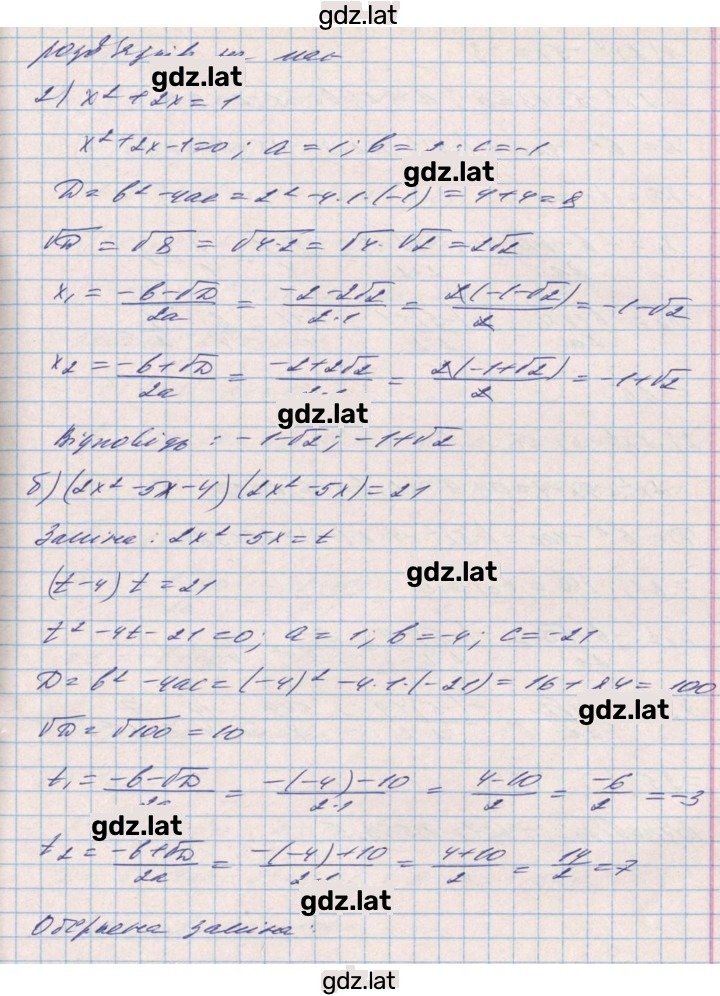 gdz.lat
розв'язків не має
gdz.lat
2) x² + 2x = 1
x² + 2x - 1 = 0; a = 1; b = 2; c = -1
gdz.lat
D = b² - 4ac = 2² - 4·1·(-1) = 4 + 4 = 8
√D = √8 = √4·2 = √4 · √2 = 2√2
x₁ = (-b - √D)/2a = (-2 - 2√2)/2·1 = 2(-1 - √2)/2 = -1 - √2
x₂ = (-b + √D)/2a = (-2 + 2√2)/2·1 = 2(-1 + √2)/2 = -1 + √2
gdz.lat
Відповідь: -1-√2; -1+√2
б) (2x² - 5x - 4)(2x² - 5x) = 21
Заміна: 2x² - 5x = t
gdz.lat
(t - 4) t = 21
t² - 4t - 21 = 0; a = 1; b = -4; c = -21
D = b² - 4ac = (-4)² - 4·1·(-21) = 16 + 84 = 100
gdz.lat
√D = √100 = 10
t₁ = (-b - √D)/2a = (-(-4) - 10)/2·1 = (4 - 10)/2 = -6/2 = -3
gdz.lat
t₂ = (-b + √D)/2a = (-(-4) + 10)/2·1 = (4 + 10)/2 = 14/2 = 7
gdz.lat
Обернена заміна:
gdz.lat